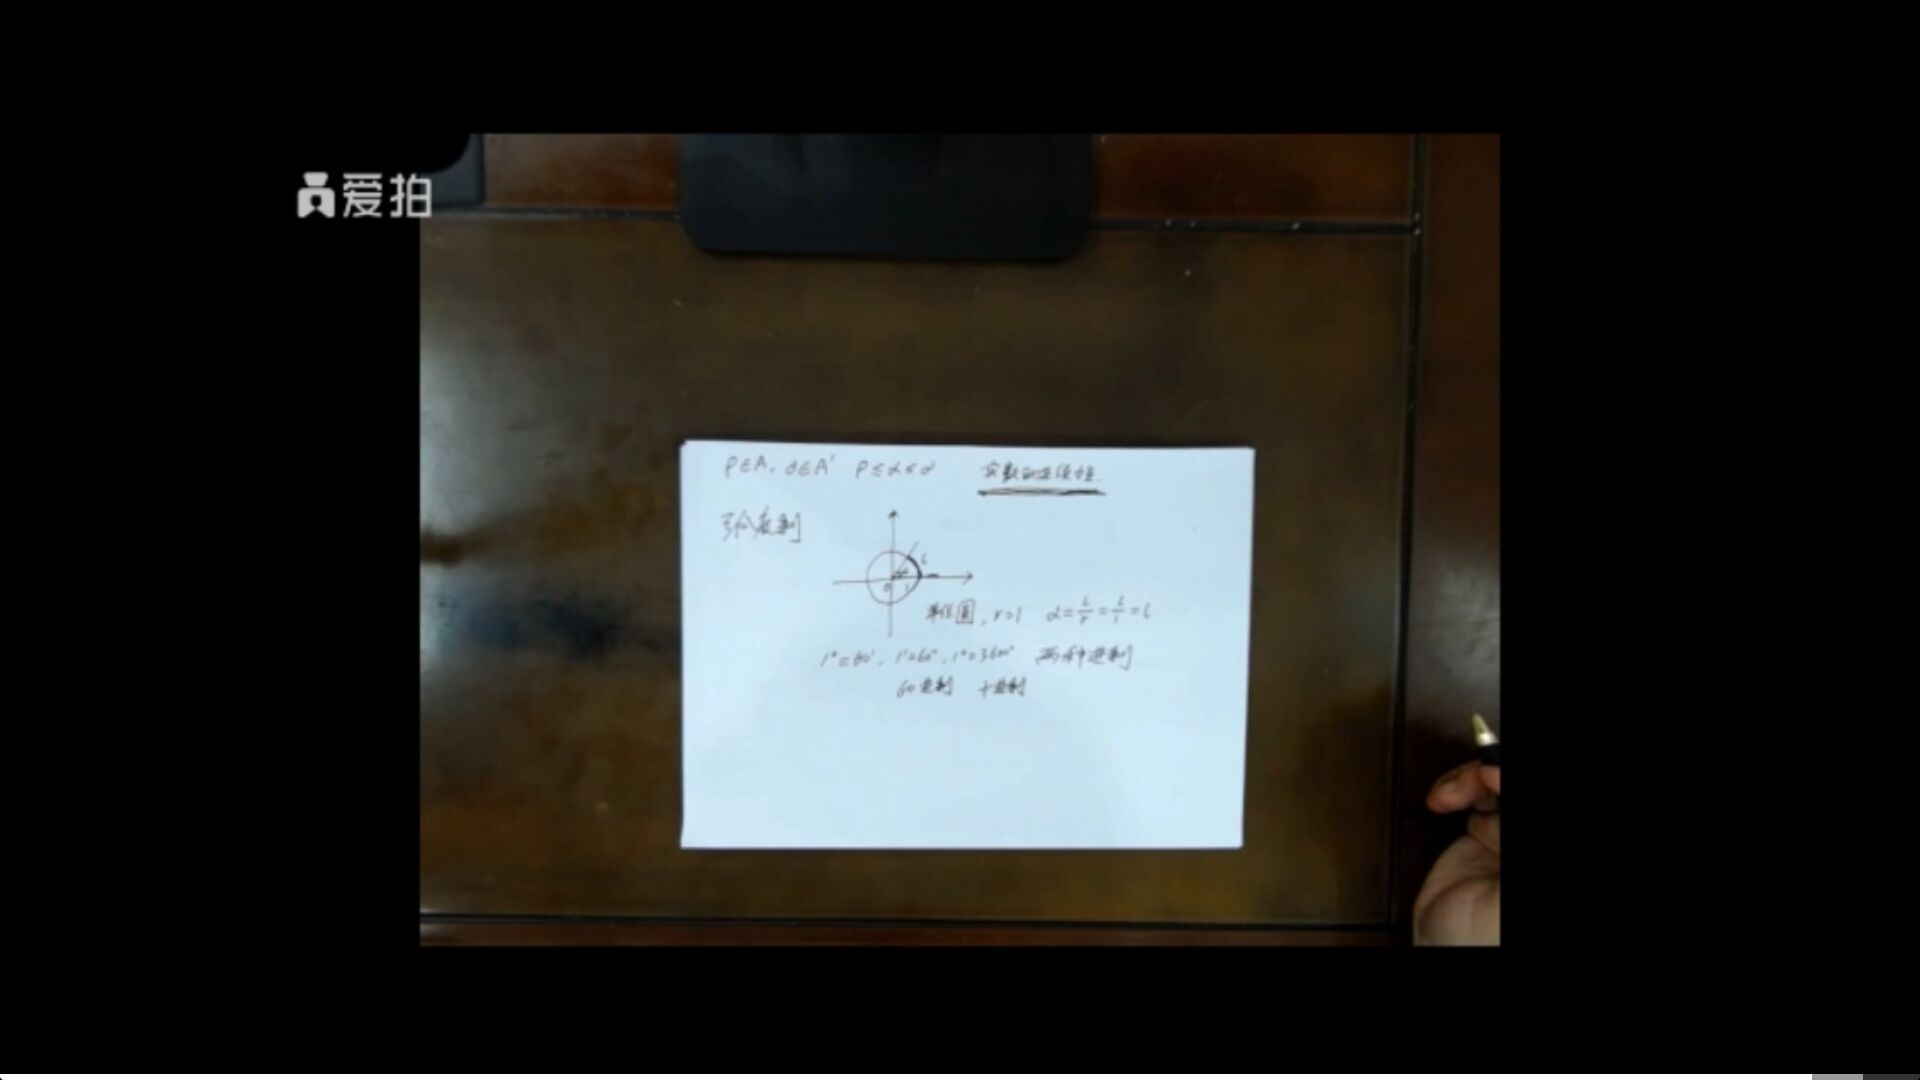 爱拍
P∈A, α∈A' P≤α≤α 实数的连续性.
弧度制
α l
0 1
单位圆, r=1 α=l/r=l/1=l
1°=60', 1'=60", 1°=3600" 两种进制
60进制 十进制